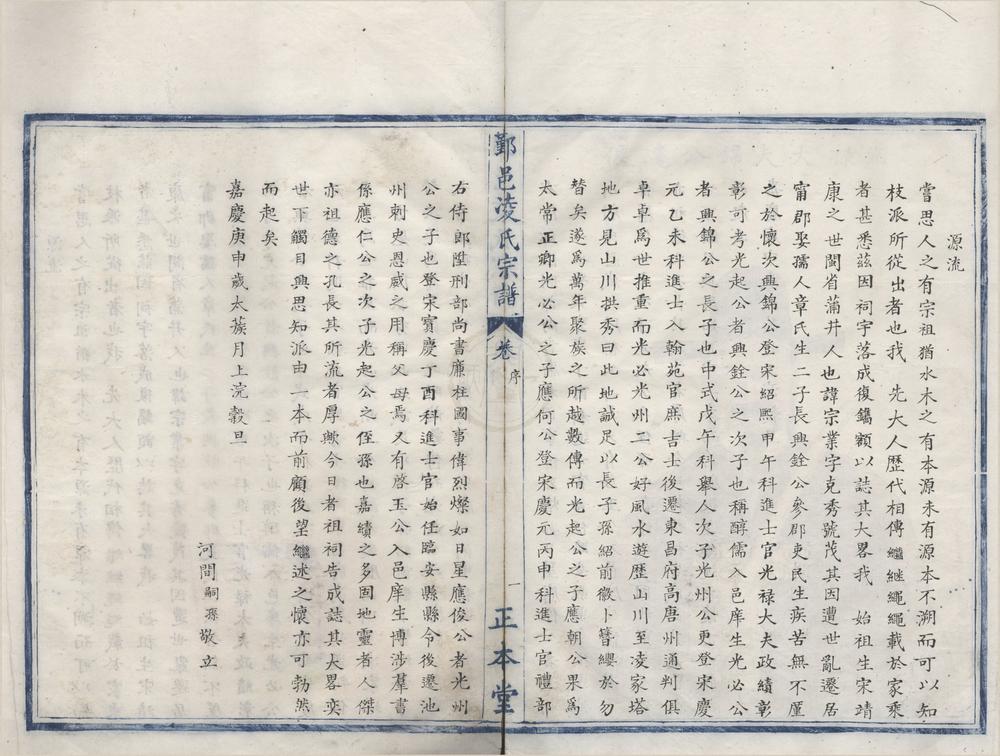 源流
嘗思人之有宗祖猶水木之有本源未有源本不溯而可以知
枝派所從出者也我 先大人歷代相傳繼繼繩繩載於家乘
者甚悉茲因祠宇落成復鐫顙以誌其大畧我 始祖生宋靖
康之世閩省蒲井人也諱宗業字克秀號茂其因遭世亂遷居
甯郡娶孺人章氏生二子長興銓公參郡吏民生疾苦無不厘
之於懷次興錦公登宋紹熙甲午科進士官光祿大夫政績彰
彰可考光起公者興銓公之次子也稱醇儒入邑庠生光必公
者興錦公之長子也中式戊午科舉人次子光州公更登宋慶
元乙未科進士入翰苑官庶吉士後遷東昌府高唐州通判俱
卓卓爲世推重而光必光州二公好風水遊歷山川至凌家塔
地方見山川拱秀曰此地誠足以長子孫紹前徽卜簪纓於勿
替矣遂爲萬年聚族之所越數傳而光起公之子應朝公果爲
太常正卿光必公之子應何公登宋慶元丙申科進士官禮部
鄞邑淩氏宗譜
卷一
序
一
正本堂
右侍郎陞刑部尚書廉柱國事偉烈燦如日星應俊公者光州
公之子也登宋寶慶丁酉科進士官始任臨安縣縣令後遷池
州刺史恩威之用稱父母焉又有啓玉公入邑庠生博涉羣書
係應仁公之次子光起公之侄孫也嘉績之多固地靈者人傑
亦祖德之孔長其所流者厚歟今日者祖祠告成誌其大畧奕
世下觸目興思知派由一本而前顧後望繼述之懷亦可勃然
而起矣
嘉慶庚申歲太蔟月上浣穀旦
河間嗣孫敬立